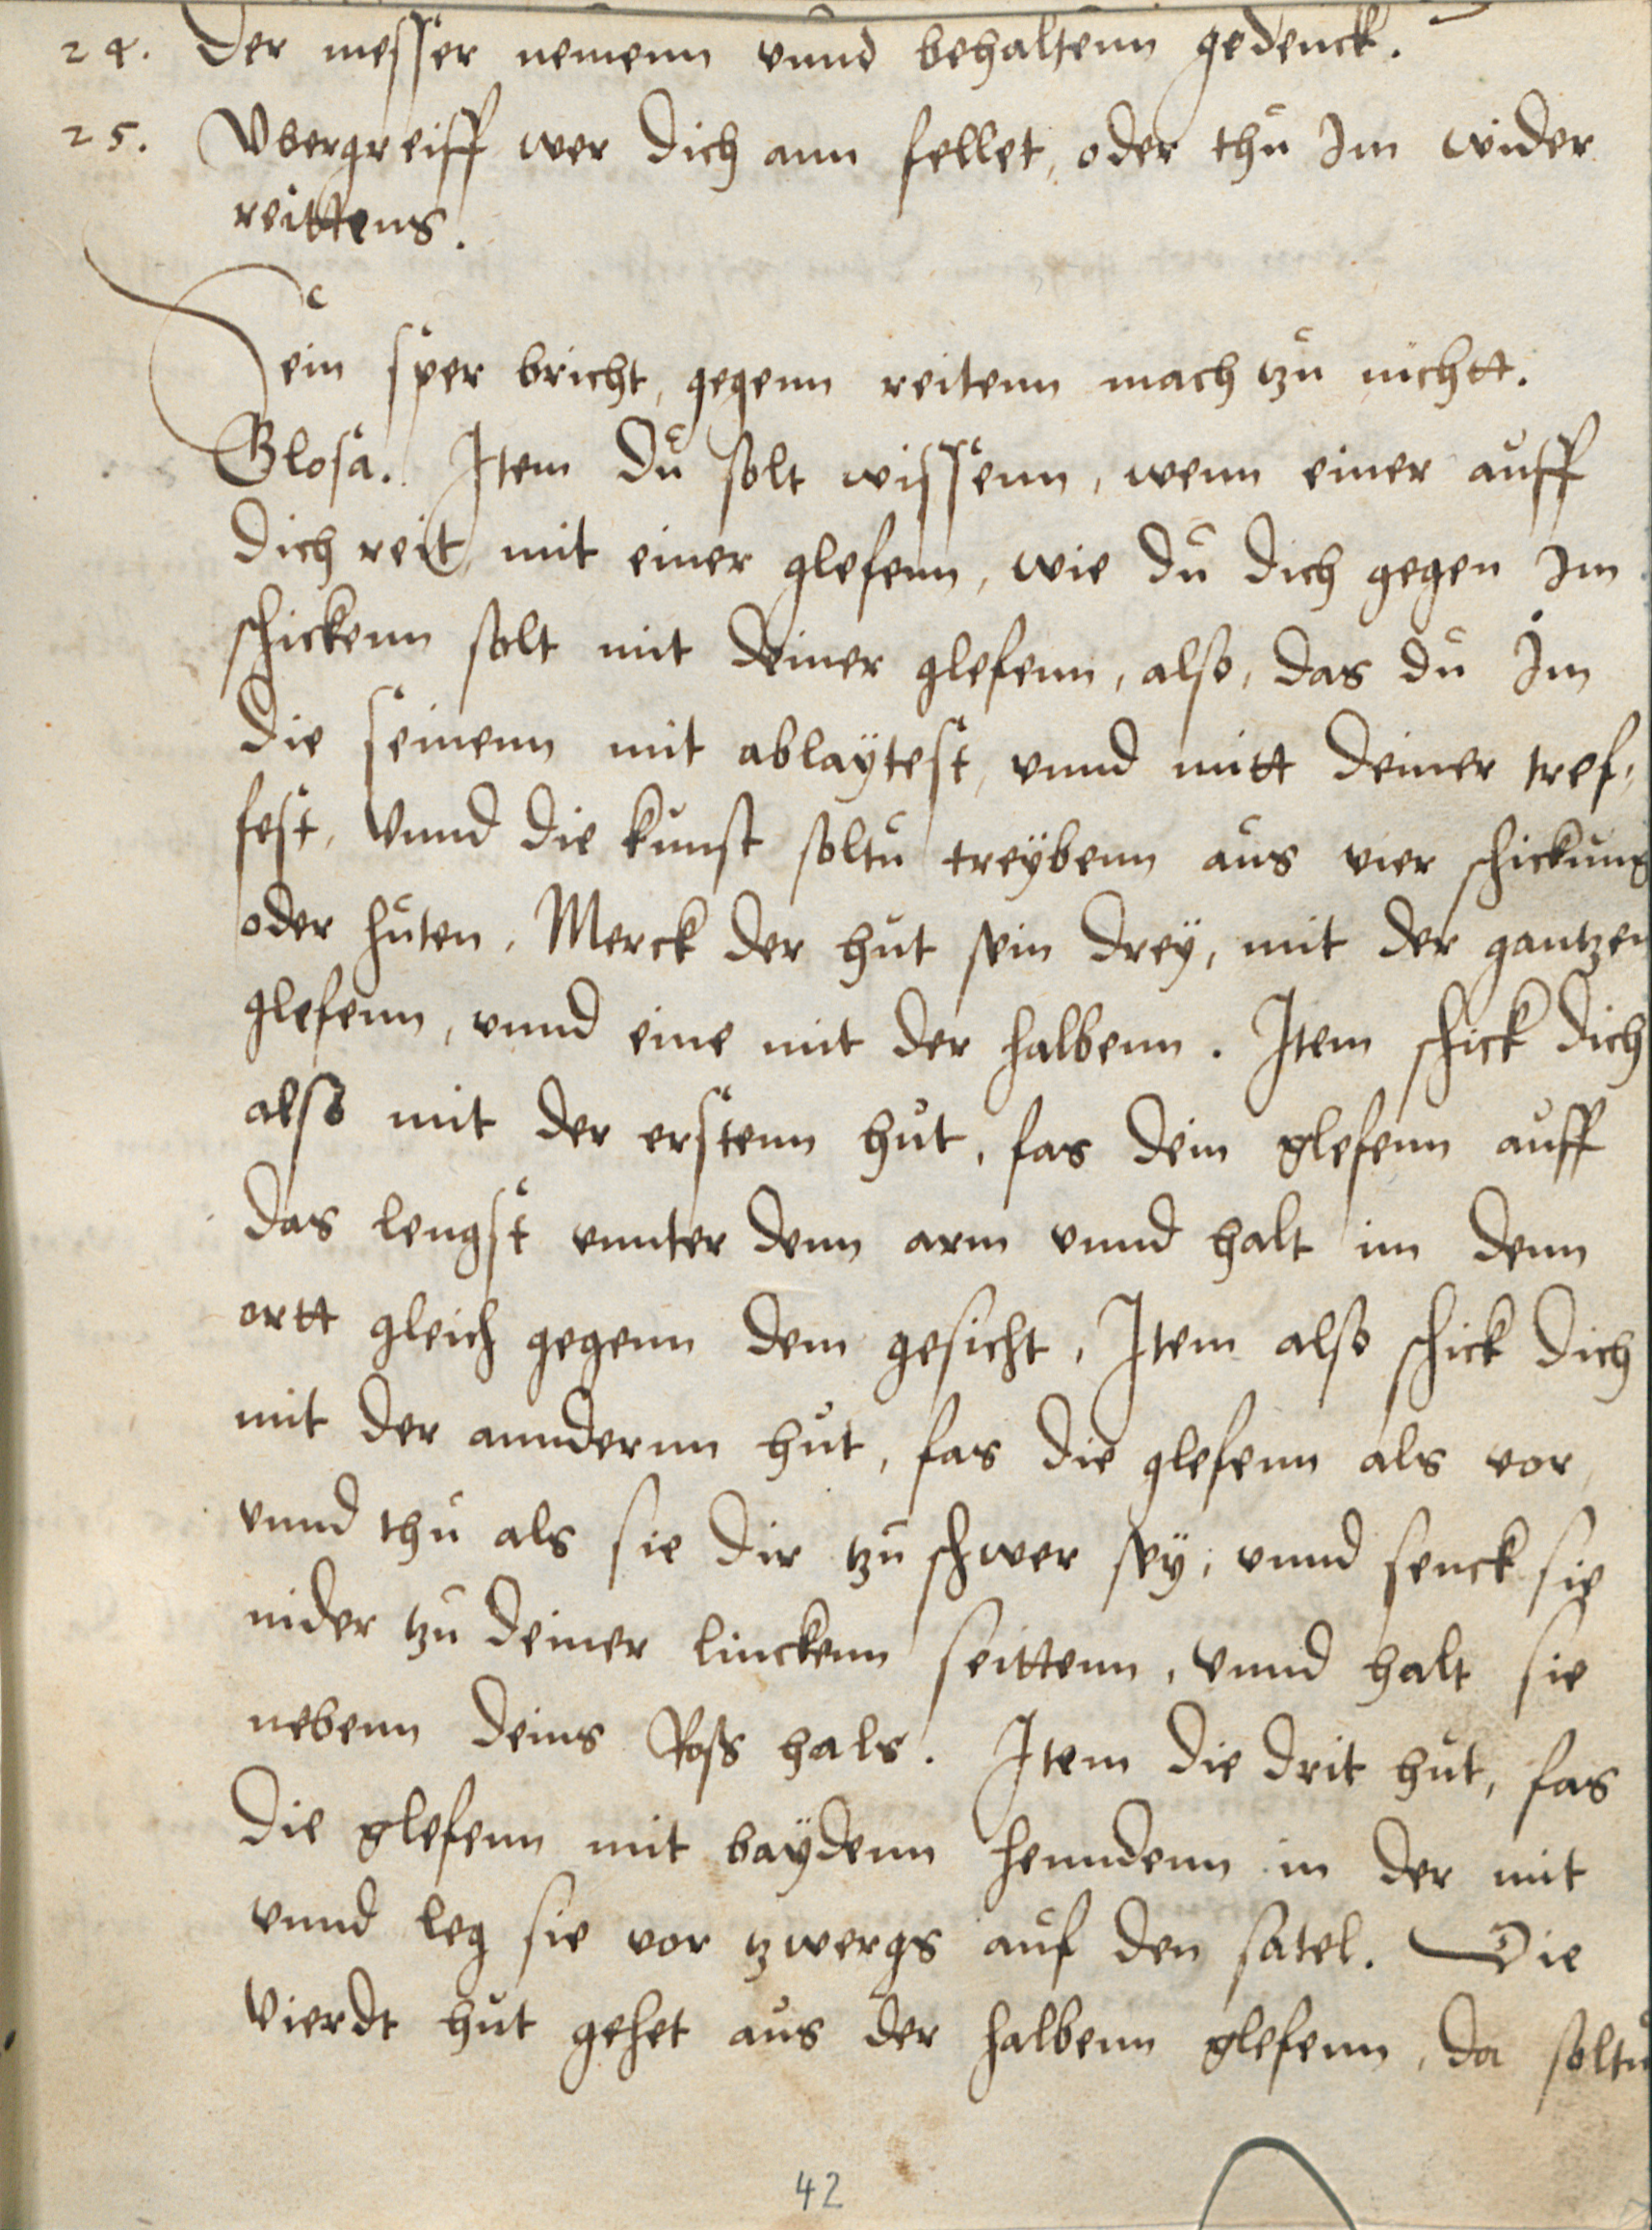 24. Der messer nemenn vnnd behaltenn gedenck.
25. Vbergreiff wer dich ann fellet, oder thu Im wider
reittens.
Dein sper bricht, gegenn reitenn mach tzu nichtt.
Glosa. Item du solt wissenn, wenn einer auff
dich reit mit einer glefenn, wie du dich gegen Im
schickenn solt mit deiner glefenn, also, das du Im
die seinenn mit ablaÿtest, vnnd mitt deiner tref,
fest, Vnnd die kunst soltu treÿbenn aus vier schickung
oder huten, Merck der hut sein dreÿ, mit der gantzen
glefenn, vnnd eine mit der halbenn. Item schick dich
also mit der erstenn hut, fas dein glefenn auff
das lengst vnnter denn arm vnnd halt im denn
ortt gleich gegenn dem gesicht, Item also schick dich
mit der anndernn hut, fas die glefenn als vor,
vnnd thu als sie dir tzu schwer seÿ, vnnd senck sie
nider tzu deiner linckenn seittenn, Vnnd halt sie
nebenn deins Ross hals. Item die drit hut, fas
die glefenn mit baÿdenn henndenn in der mit
vnnd leg sie vor tzwergs auf den satel. Die
Vierdt hut gehet aus der halbenn glefenn, da soltu
42